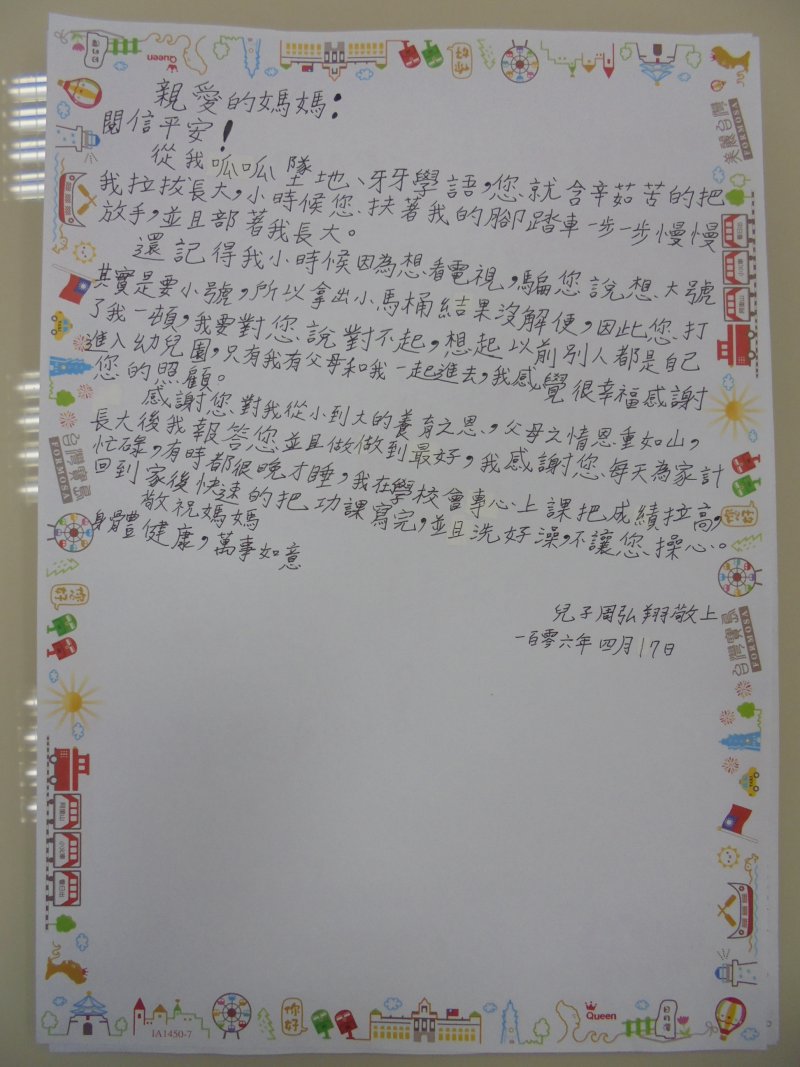 親愛的媽媽：
閱信平安！
從我呱呱墬地、牙牙學語，您就含辛茹苦的把
我拉拔長大，小時候您扶著我的腳踏車一步一步慢慢
放手，並且部著我長大。
還記得我小時候因為想看電視，騙您說想大號
其實是要小號，所以拿出小馬桶結果沒解便，因此您打
了我一頓，我要對您說對不起，想起以前別人都是自己
進入幼兒園，只有我有父母和我一起進去，我感覺很幸福感謝
您的照顧。
感謝您對我從小到大的養育之恩，父母之情恩重如山，
長大後我報答您並且做做到最好，我感謝您每天為家計
忙碌，有時都很晚才睡，我在學校會專心上課把成績拉高，
回到家後快速的把功課寫完，並且洗好澡，不讓您操心。
敬祝媽媽
身體健康，萬事如意
兒子周弘翔敬上
一百零六年四月17日
Queen
你好
美麗台灣
FORMOSA
台灣寶島
FORMOSA
你好
台灣寶島
FORMOSA
你好
阿里山
小火車
看日出
你好
Queen
日月潭
IA1450-7